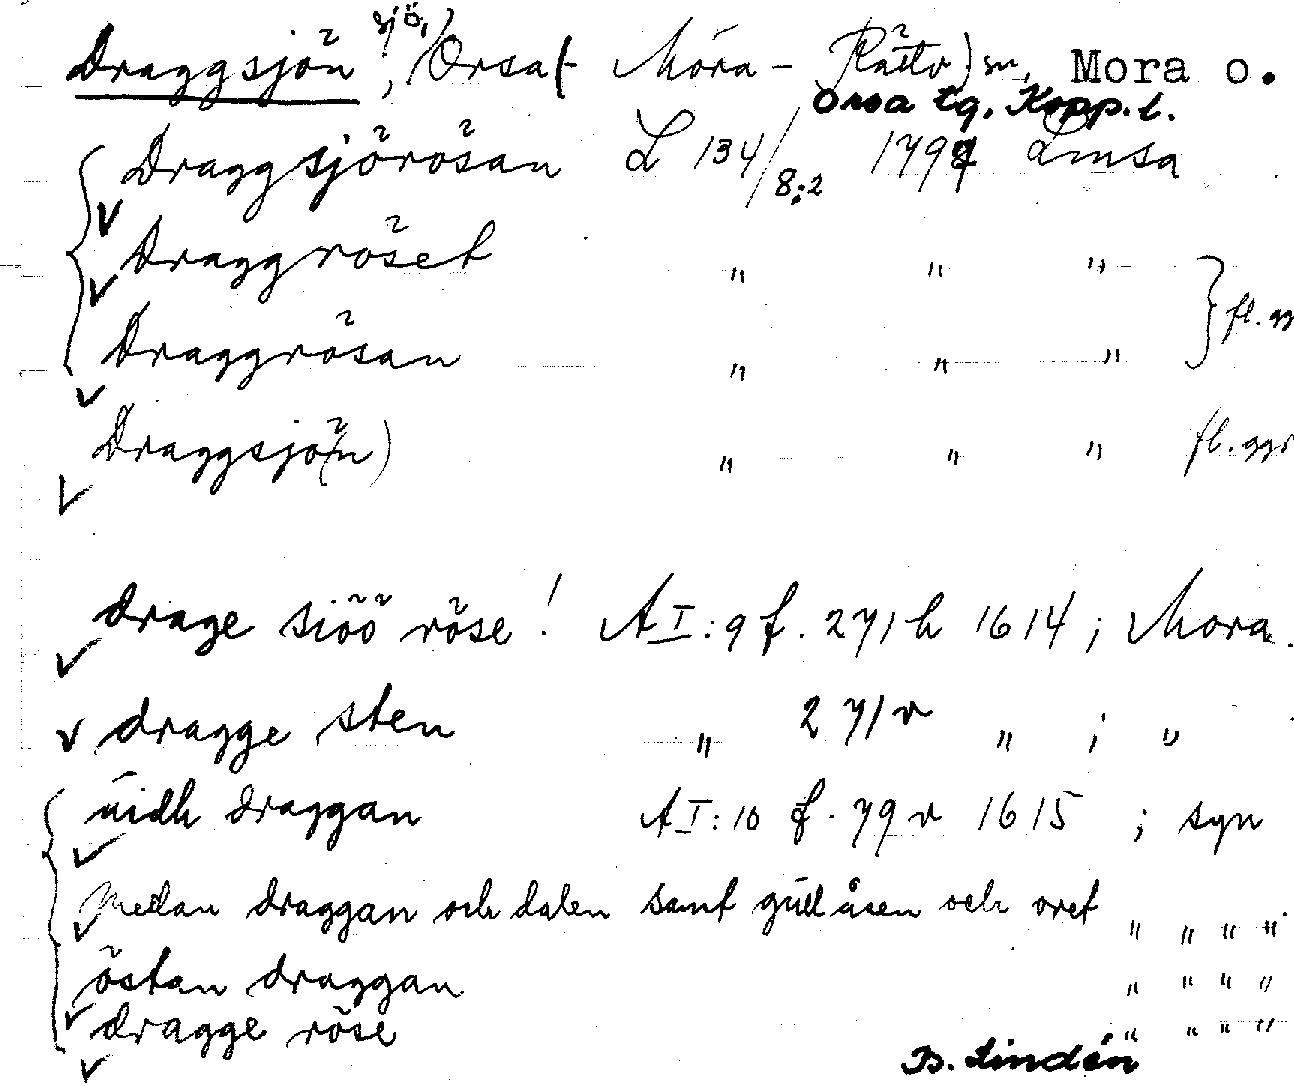 Draggsjön, sjö, Orsa(- Mora - Rättv) sn, Mora o.
Orsa tg. Kopp. l.
Draggsjörösan L 134/8:2 179 Linsa
Draggröset " " "
Draggrösan " " " } fl. gg
Draggsjö(n) " " " fl. ggr
drage siöö röse! AI:9 f. 271 h 1614; Mora.
dragge sten " 271 v " ; "
uidh draggan AI:10 f. 79 v 1615 ; syn
Medan draggan och dalen samt gull åsen och oret " " " "
östan draggan " " " "
dragge röse " " " "
B. Lindén